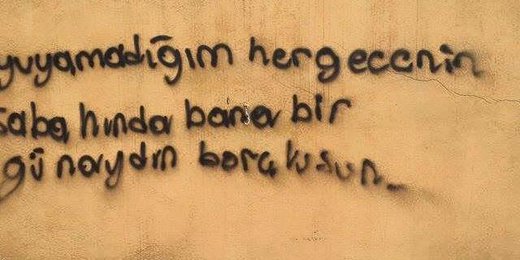 yuyamadığım hergecenin
sabahında bana bir
günaydın borçlusun..